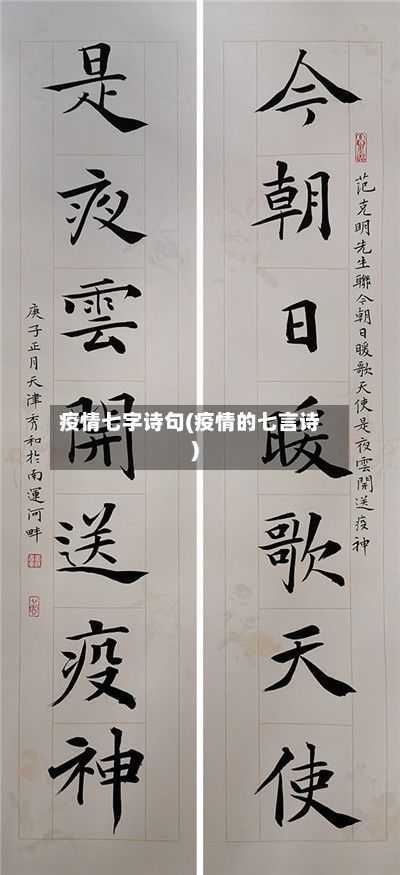 今朝日暖歌天使
范克明先生聯今朝日暖歌天使是夜雲開送疫神
是夜雲開送疫神
庚子正月天津秀和於南運河畔
疫情七字诗句(疫情的七言诗
)